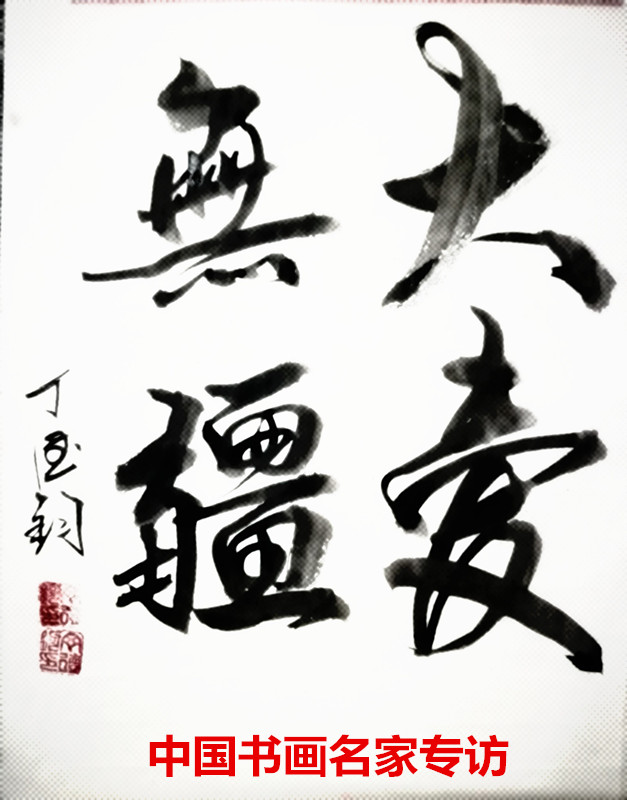 大愛
無疆
丁德钧
中国书画名家专访